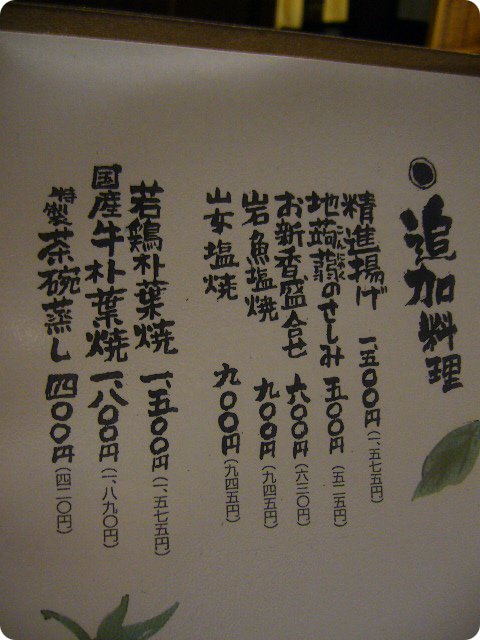 追加料理
精進揚げ 一、五〇〇円(一、五七五円)
地蒟蒻のさしみ 五〇〇円(五二五円)
お新香盛合せ 六〇〇円(六三〇円)
岩魚塩焼 九〇〇円(九四五円)
山女塩焼 九〇〇円(九四五円)
若鶏朴葉焼 一、五〇〇円(一、五七五円)
国産牛朴葉焼 一、八〇〇円(一、八九〇円)
特製茶碗蒸し 四〇〇円(四二〇円)